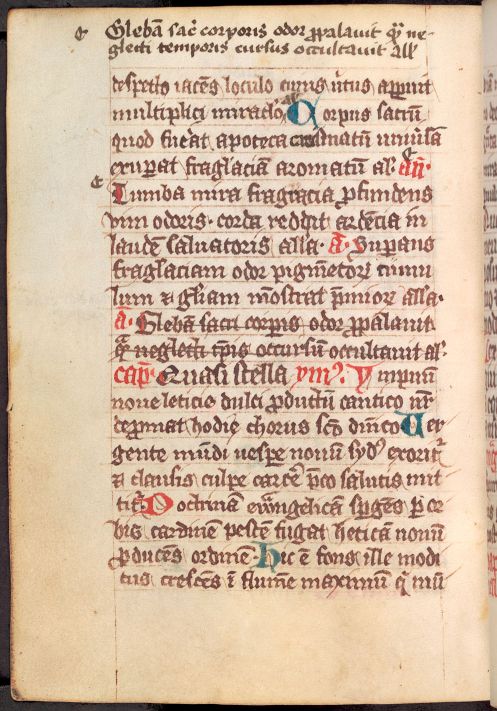 Glebā sac̄ corporis odor ꝓpalauit qͣ ne-
glecti temporis cursus occultauit all̄
despectˢ iacēs loculo cuius ūtus apparuit
multiplici miraclo Corpus sacrū
quod fuerat apoteca carismatū uniūsa
exuperat fraglāciā aromatū al. añ.
Tumba mira fragracia ꝓfundens
uim odoris. corda reddit ardēcia in
laudē saluatoris alla. A. Superans
fraglāciam odor pigmētorꝝ tumu
lum ⁊ gl̄iam mōstrat p̄miorꝝ alla.
A. Glebā sacri corpis odor ꝓpalauit
qͣ neglecti tp̄is occursū occultauit al.
cap. Quasi stella ymꝰ. Ympnū
noue leticie dulci ꝓductū cantico nr̄
depromat hodie chorus scō dn̄ico Uer
gente mūdi uespe nouū sydꝰ exoritᷣ
⁊ clausis culpe carcē p̄co salutis mit
titᷣ Doctrinā ewāgelicā sp̄gēs ꝑ or
bis cardinē pestē fugat heticā nouū
ꝓducēs ordinē hic ē fons ille modi
cus crescēs ī flumē maximū qͥ mū